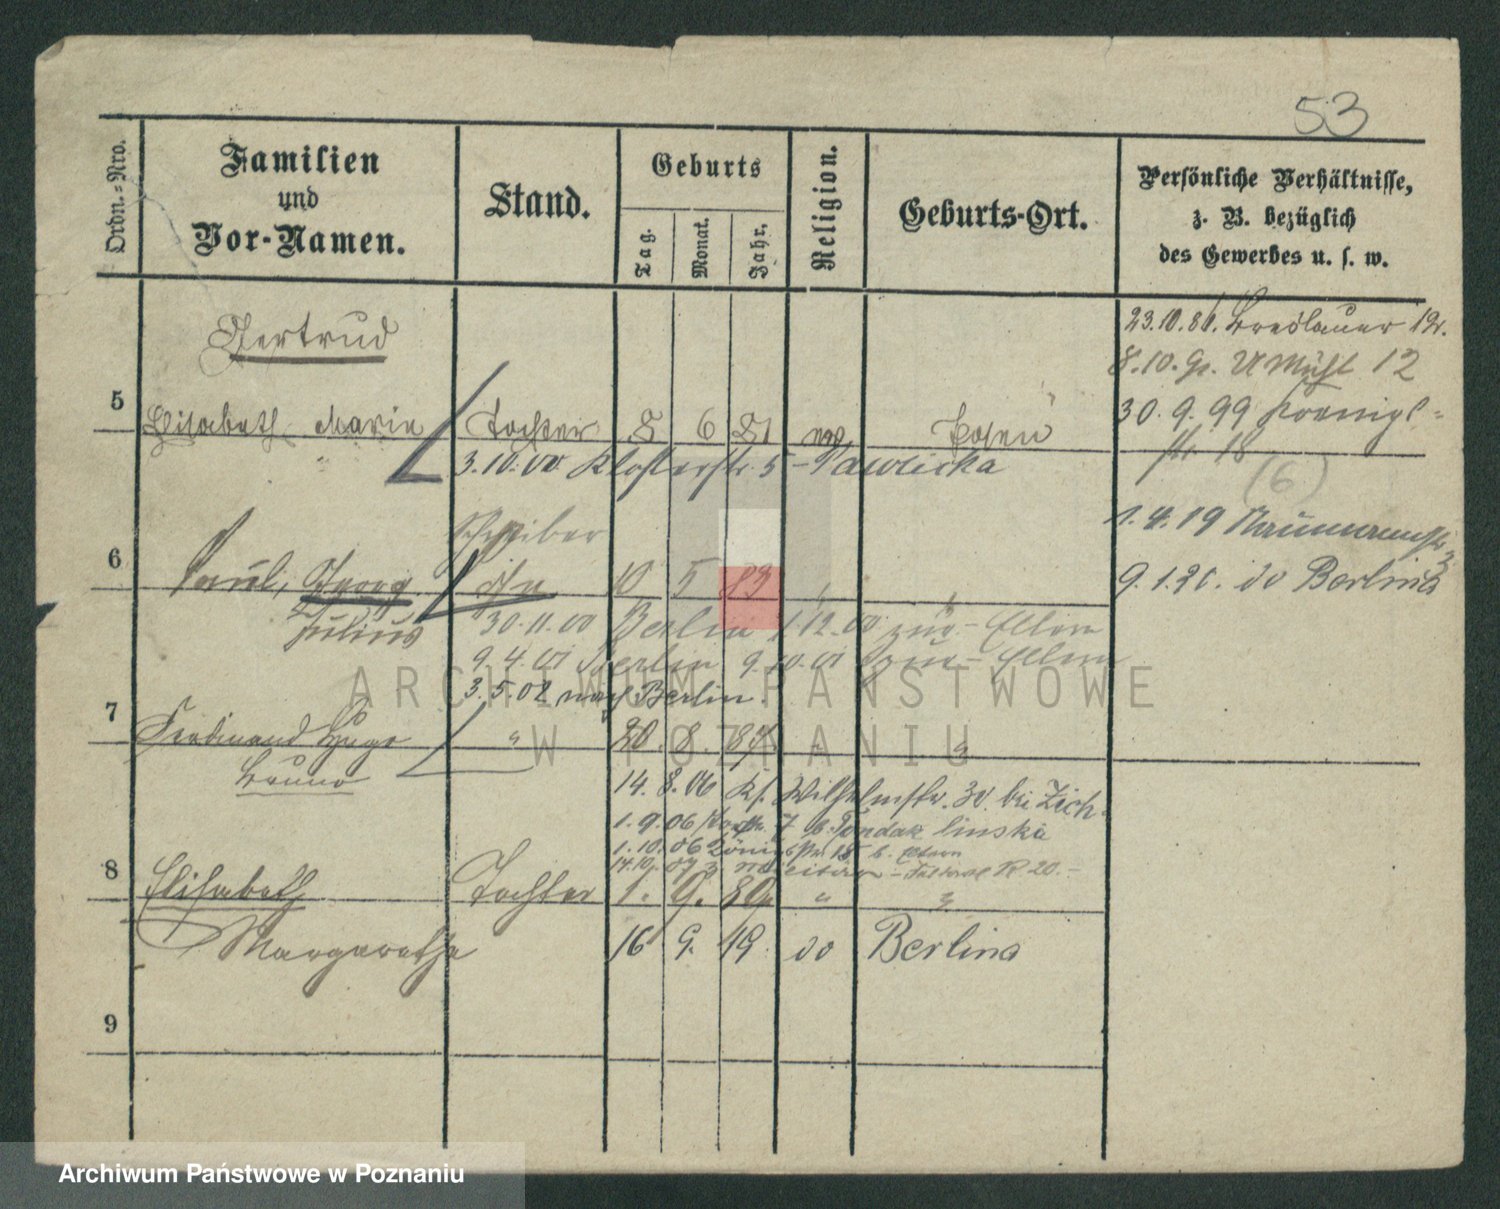 53
Ordn.-Nro.
Familien
und
Vor-Namen.
Stand.
Geburts
Tag.
Monat.
Jahr.
Religion.
Geburts-Ort.
Persönliche Verhältnisse,
z. B. bezüglich
des Gewerbes u. s. w.
23.10.81. Breslauer
Gertrud
8.10. 12
30.9.99 Koenigl-
str 18
5 Elisabeth Marie Tochter 8 6 81 Posen
3.10.00 Klosterstr. 5 - Pawlicka
(6)
1.4.19 Naumannstr
Schreiber
6 Paul, Georg 10 5 83
9.1.20. do Berlina
Julius
30.11.00 Berlin 1.12.00 zur. Eltern
9.4.01 Berlin 9.10.01 zur - Eltern
3.5.02 nach Berlin.
7 Ferdinand Hugo " 20. 8. " "
Bruno
14.8.06 Wilhelmstr. 30 bei Zich-
linski
1.9.06 7 b. Pondak
1.10.06 Königstr. 18 b. Eltern
8 Elisabeth Tochter 1. 9. 89 " "
Margarethe 16 9. 19. do Berlina
9
ARCHIWUM PAŃSTWOWE
W POZNANIU
Archiwum Państwowe w Poznaniu